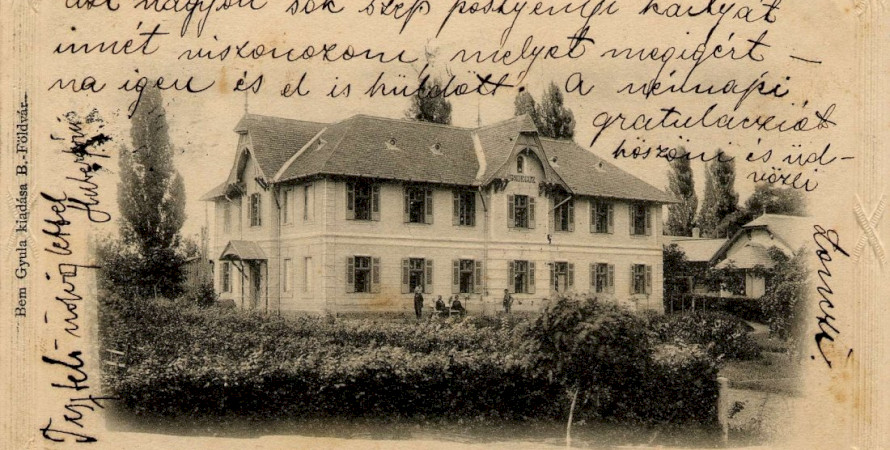 azt nagyon sok szép pöstyényi kártyát
innét viszonozom, melyet megigért –
na igen és el is küldött. A névnapi
gratulácziót
köszöni és üd-
vözei
Bem Gyula kiadása B.-Földvár.
Tisztelő üdvözlettel